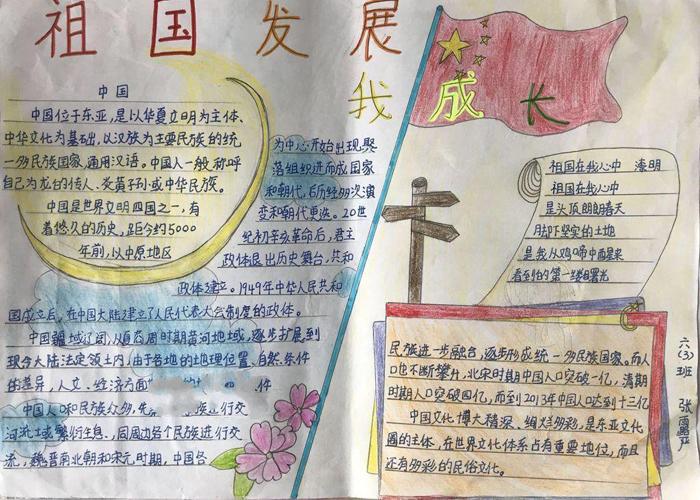 祖国发展
我成长
中国
中国位于东亚，是以华夏文明为主体、
中华文化为基础，以汉族为主要民族的统
一多民族国家，通用汉语。中国人一般称呼
自己为龙的传人、炎黄子孙或中华民族。
中国是世界文明四国之一，有
着悠久的历史，距今约5000
年前，以中原地区
为中心开始出现聚
落组织进而成国家
和朝代，后历经多次演
变和朝代更迭。20世
纪初辛亥革命后，君主
政体退出历史舞台，共和
政体建立。1949年中华人民共和
国成立后，在中国大陆建立了人民代表大会制度的政体。
中国疆域辽阔，从西周时期黄河地域，逐步扩展到
现今大陆法定领土内，由于各地的地理位置、自然条件
的差异，人文、经济方面
件
中国人口和民族众多，
族进行交
河流域繁衍生息、同周边各个民族进行交
流，魏晋南北朝和宋元时期，中国各
祖国在我心中 海明
祖国在我心中
是头顶朗朗春天
是我从鸡啼中
看到的第一缕曙光
民族进一步融合，逐步形成统一多民族国家。而人
口也不断攀升，北宋时期中国人口突破一亿，清期
时期人口突破四亿，而到2013年中国人口达到十三亿
中国文化博大精深、绚烂多彩，是东亚文化
圈的主体，在世界文化体系占有重要地位，而且
还有多彩的民俗文化。
六(3)班 张